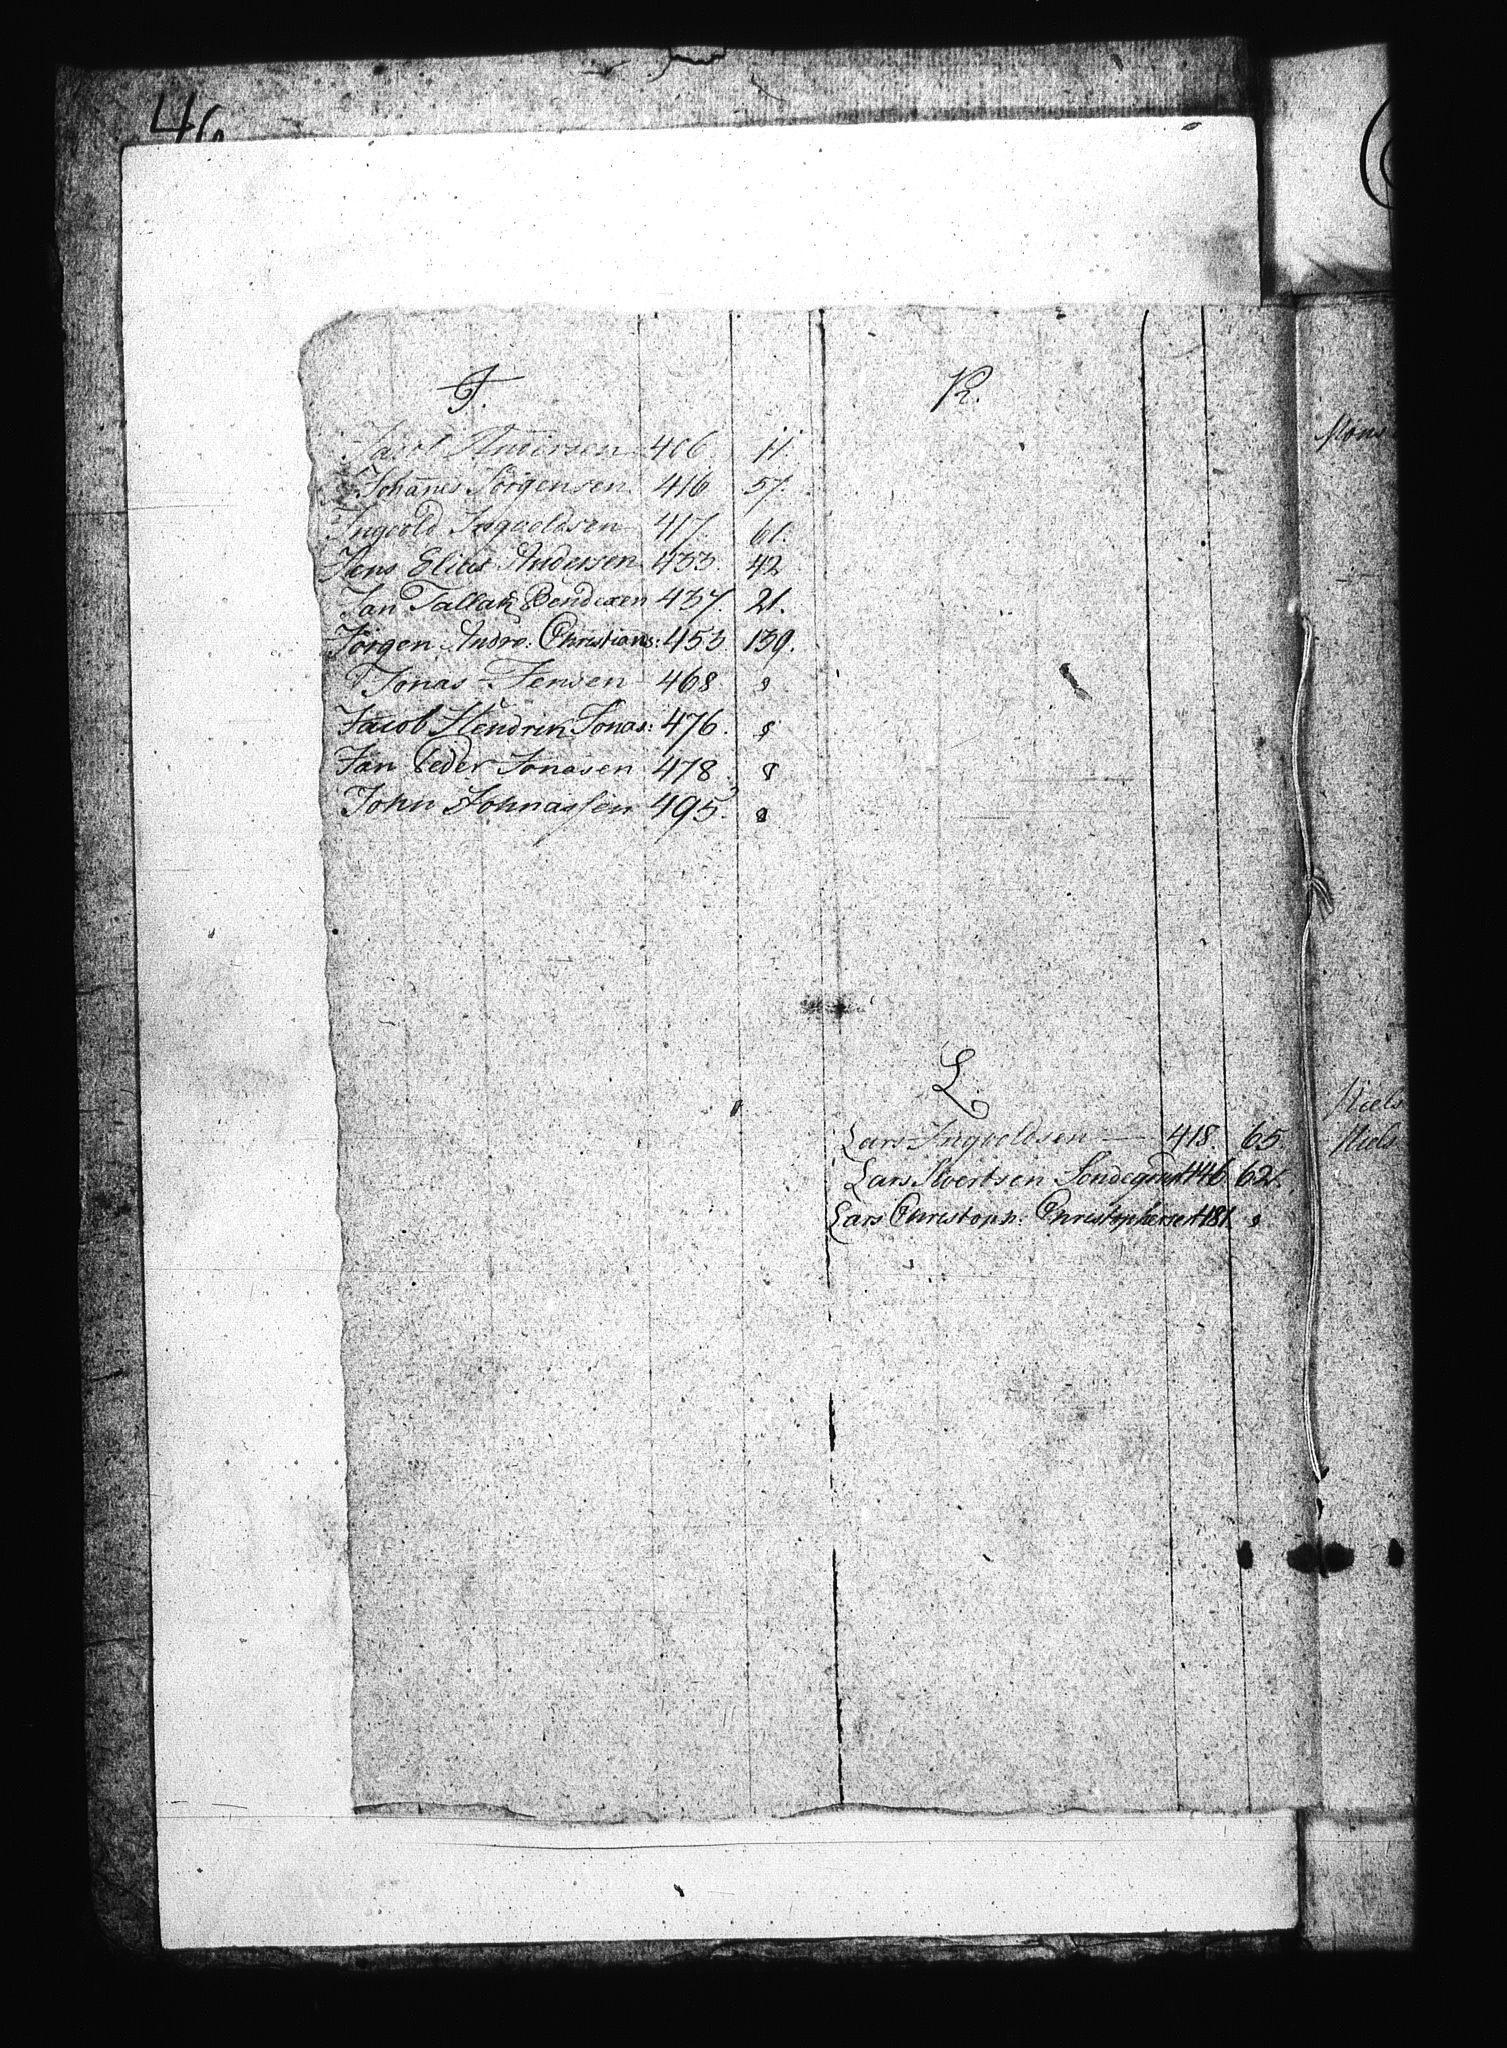 46
J.
Jacob Andersen 406. 11.
Johanes Jörgensen 416 57.
Ingvold Ingvoldsen 417. 61.
Jens Elias Andersen 433. 42
Jan Tallak Bendixen 437. 21.
Jörgen Andre: Christians: 453 139.
Jonas Jensen 468
Jacob Hendrik Jonas: 476.
Jan Peder Jonasen 478
John Johnassen 495.
K.
L.
Lars Ingvoldsen — 418. 65.
Lars Sivertsen 446 62.
Lars Christoph: Christophersen 481.
Mons
Niels
Niels